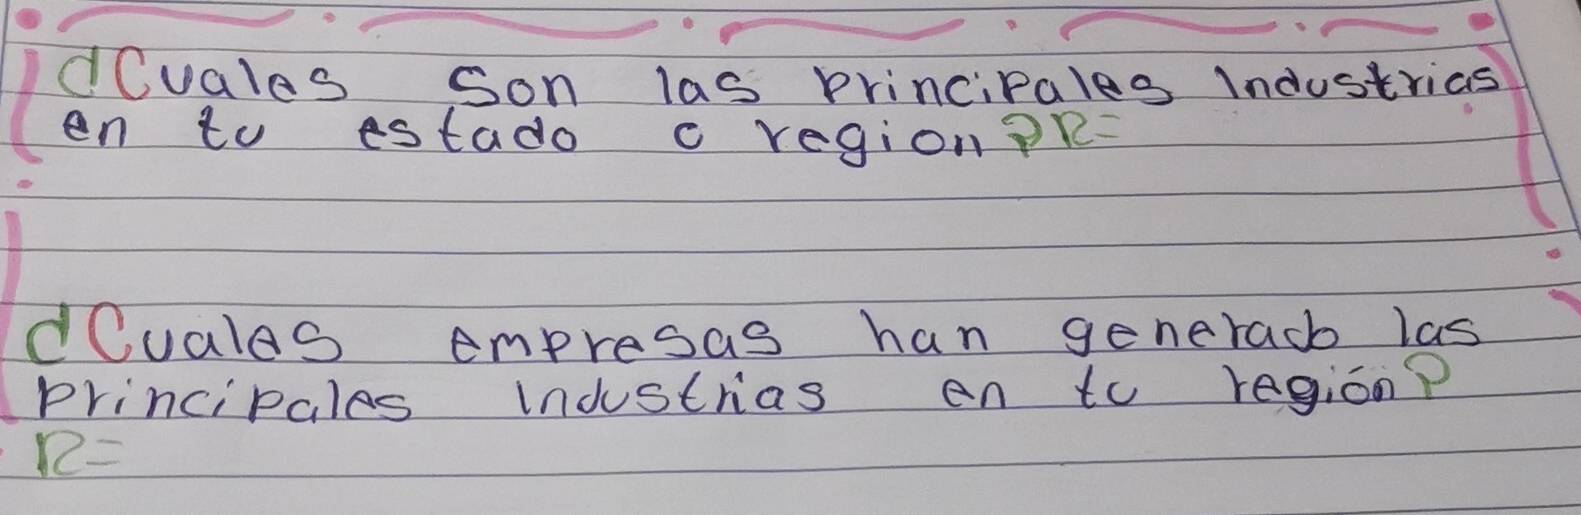 ¿Cuales son las principales Industrias
en tu estado o region? R=
¿Cuales empresas han generado las
principales industrias en tu región?
R=